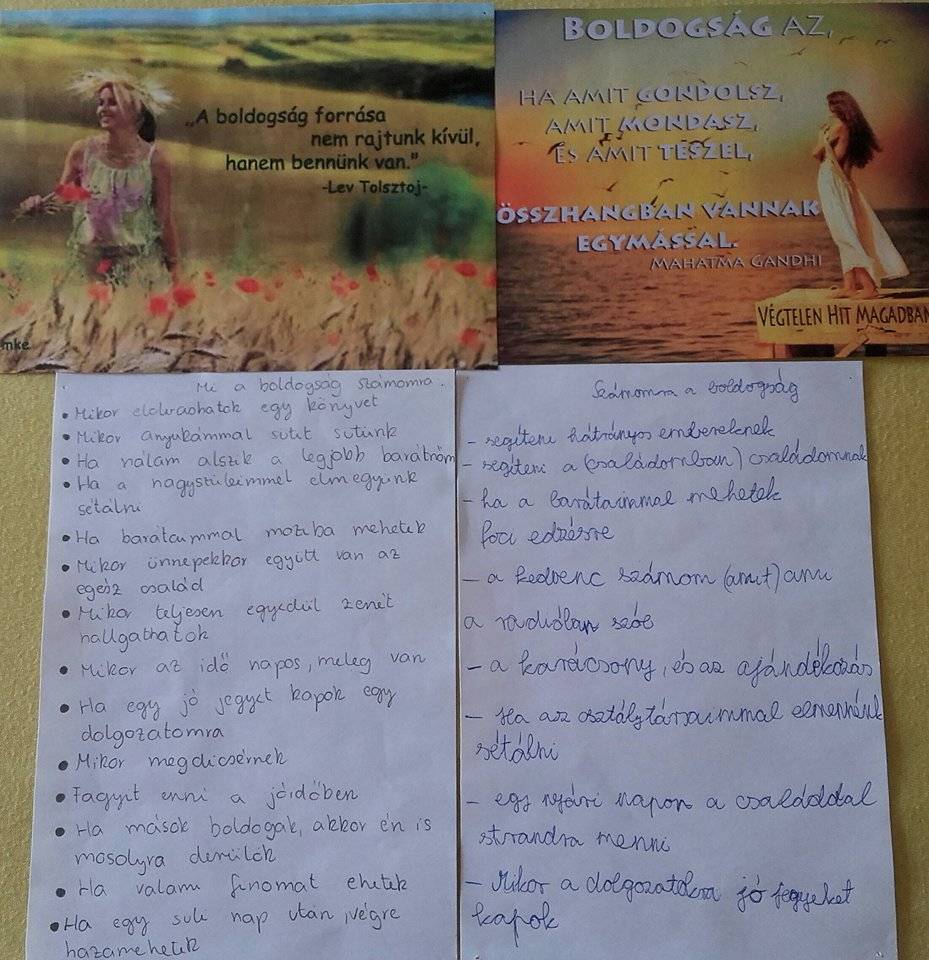 „A boldogság forrása
nem rajtunk kívül,
hanem bennünk van."
-Lev Tolsztoj-
mke
BOLDOGSÁG AZ,
HA AMIT GONDOLSZ,
AMIT MONDASZ,
ÉS AMIT TESZEL,
ÖSSZHANGBAN VANNAK
EGYMÁSSAL.
MAHATMA GANDHI
VÉGTELEN HIT MAGADBAN
Mi a boldogság számomra.
• Mikor elolvashatok egy könyvet
• Mikor anyukámmal sütit sütünk
• Ha nálam alszik a legjobb barátnőm
• Ha a nagyszüleimmel elmegyünk
sétálni
• Ha barátaimmal moziba mehetek
• Mikor ünnepekkor együtt van az
egész család
• Mikor teljesen egyedül zenét
hallgathatok
• Mikor az idő napos, meleg van
• Ha egy jó jegyet kapok egy
dolgozatomra
• Mikor megdicsérnek
• Fagyit enni a jóidőben
• Ha mások boldogak, akkor én is
mosolyra derülök
• Ha valami finomat ehetek
• Ha egy suli nap után, végre
hazamehetek
Számomra a boldogság
- segíteni hátrányos embereknek
- segíteni a (családomban) családomnak
- ha a barátaimmal mehetek
foci edzésre
- a kedvenc számom (amit) ami
a radióban szól
- a karácsony, és az ajándékozás
- Ha az osztálytársaimmal elmennénk
sétálni
- egy nyári napon a családdal
strandra menni
- Mikor a dolgozatokra jó jegyeket
kapok